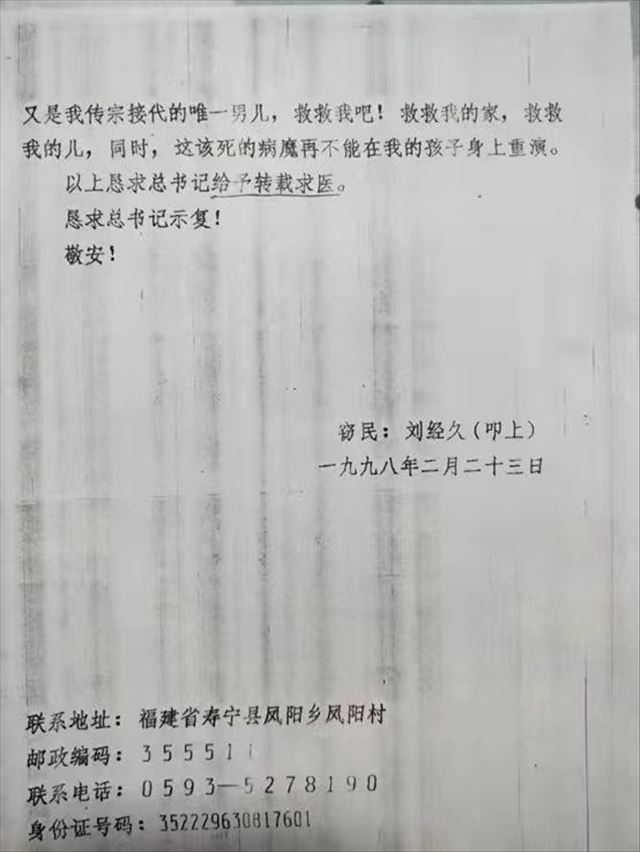 又是我传宗接代的唯一男儿，救救我吧！救救我的家，救救
我的儿，同时，这该死的病魔再不能在我的孩子身上重演。
以上恳求总书记给予转载求医。
恳求总书记示复！
敬安！
窃民：刘经久(叩上)
一九九八年二月二十三日
联系地址：福建省寿宁县凤阳乡凤阳村
邮政编码：355511
联系电话：0593—5278190
身份证号码：352229630817601